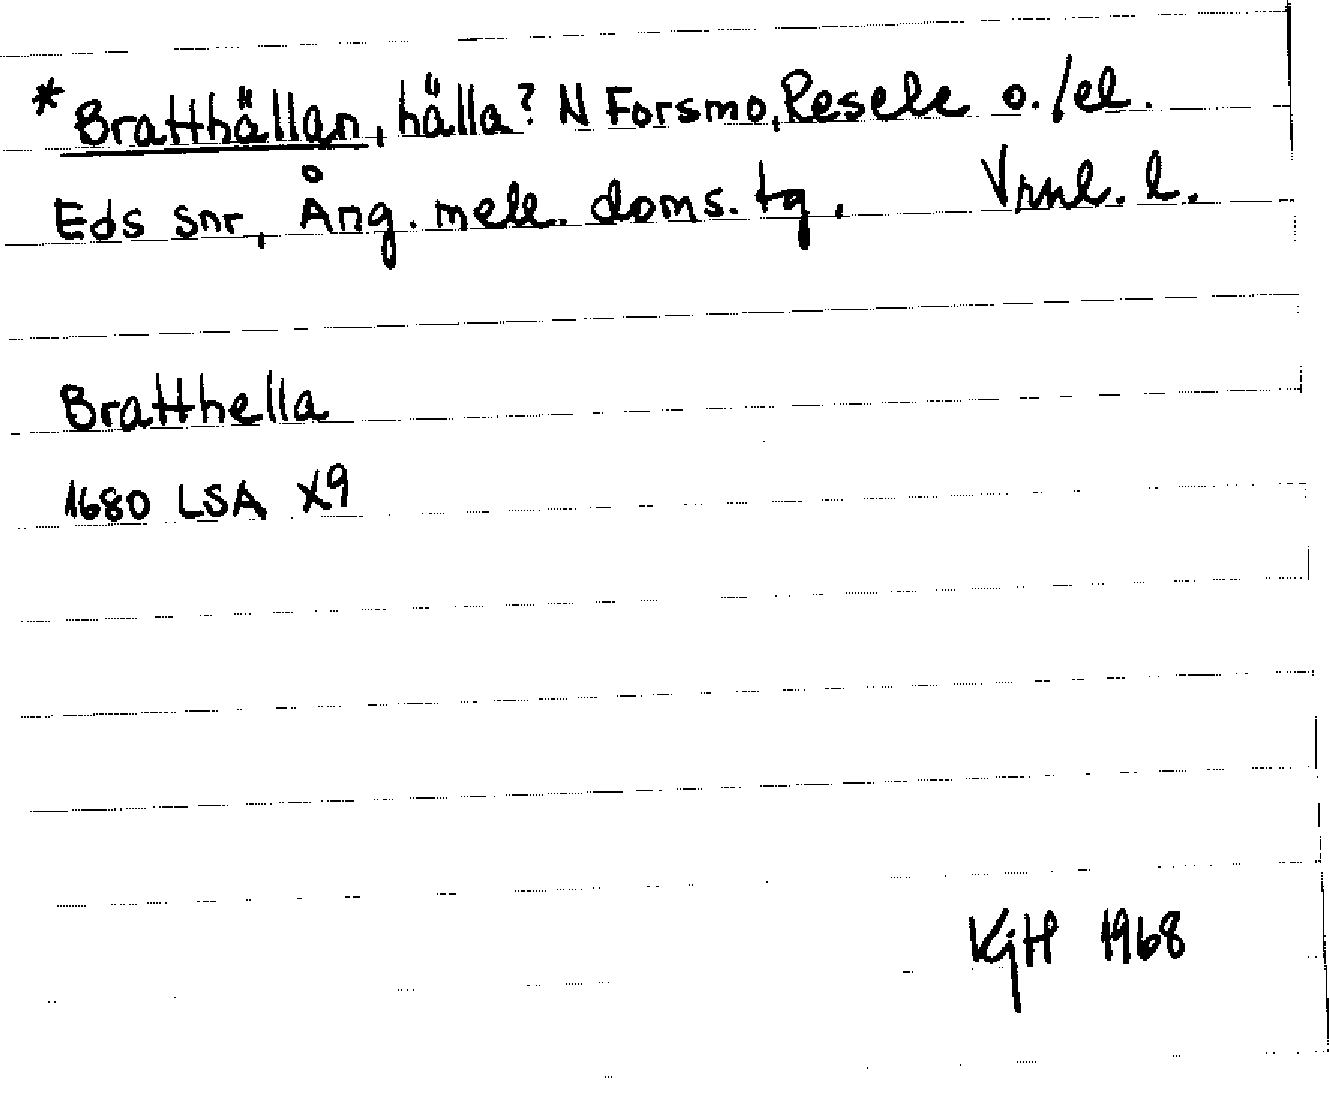 *Bratthällan, hälla? N Forsmo, Resele o./el.
Eds snr, Ång. mell. doms. tg. Vrnl. l.
Bratthella
1680 LSA X9
KGH 1968